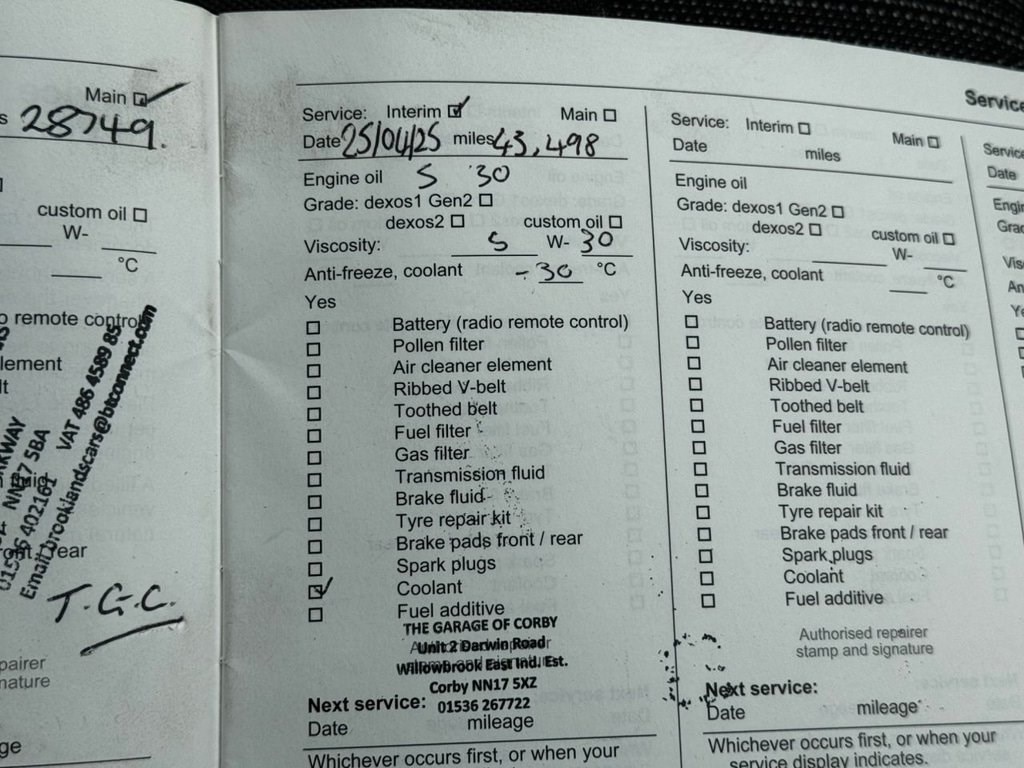 Main ☑
s 28749.
custom oil ☐
W-
°C
o remote control
lement
lt
VAT 486 4589 85
NN17 5BA
01536 402161
Email: brooklandscars@btconnect.com
rear
T.G.C.
pairer
nature
ge
Service: Interim ☑ Main ☐
Date 25/04/25 miles 43,498
Engine oil 5 30
Grade: dexos1 Gen2 ☐
dexos2 ☐ custom oil ☐
Viscosity: 5 W- 30
Anti-freeze, coolant -30 °C
Yes
☐ Battery (radio remote control)
☐ Pollen filter
☐ Air cleaner element
☐ Ribbed V-belt
☐ Toothed belt
☐ Fuel filter
☐ Gas filter
☐ Transmission fluid
☐ Brake fluid
☐ Tyre repair kit
☐ Brake pads front / rear
☐ Spark plugs
☑ Coolant
☐ Fuel additive
THE GARAGE OF CORBY
Unit 2 Darwin Road
Willowbrook East Ind. Est.
Corby NN17 5XZ
01536 267722
Next service:
Date mileage
Whichever occurs first, or when your
Service
Service: Interim ☐ Main ☐
Date miles
Engine oil
Grade: dexos1 Gen2 ☐
dexos2 ☐ custom oil ☐
Viscosity: W-
Anti-freeze, coolant °C
Yes
☐ Battery (radio remote control)
☐ Pollen filter
☐ Air cleaner element
☐ Ribbed V-belt
☐ Toothed belt
☐ Fuel filter
☐ Gas filter
☐ Transmission fluid
☐ Brake fluid
☐ Tyre repair kit
☐ Brake pads front / rear
☐ Spark plugs
☐ Coolant
☐ Fuel additive
Authorised repairer
stamp and signature
Next service:
Date mileage
Whichever occurs first, or when your
service display indicates.
Service
Date
Engin
Grad
Visc
An
Ye